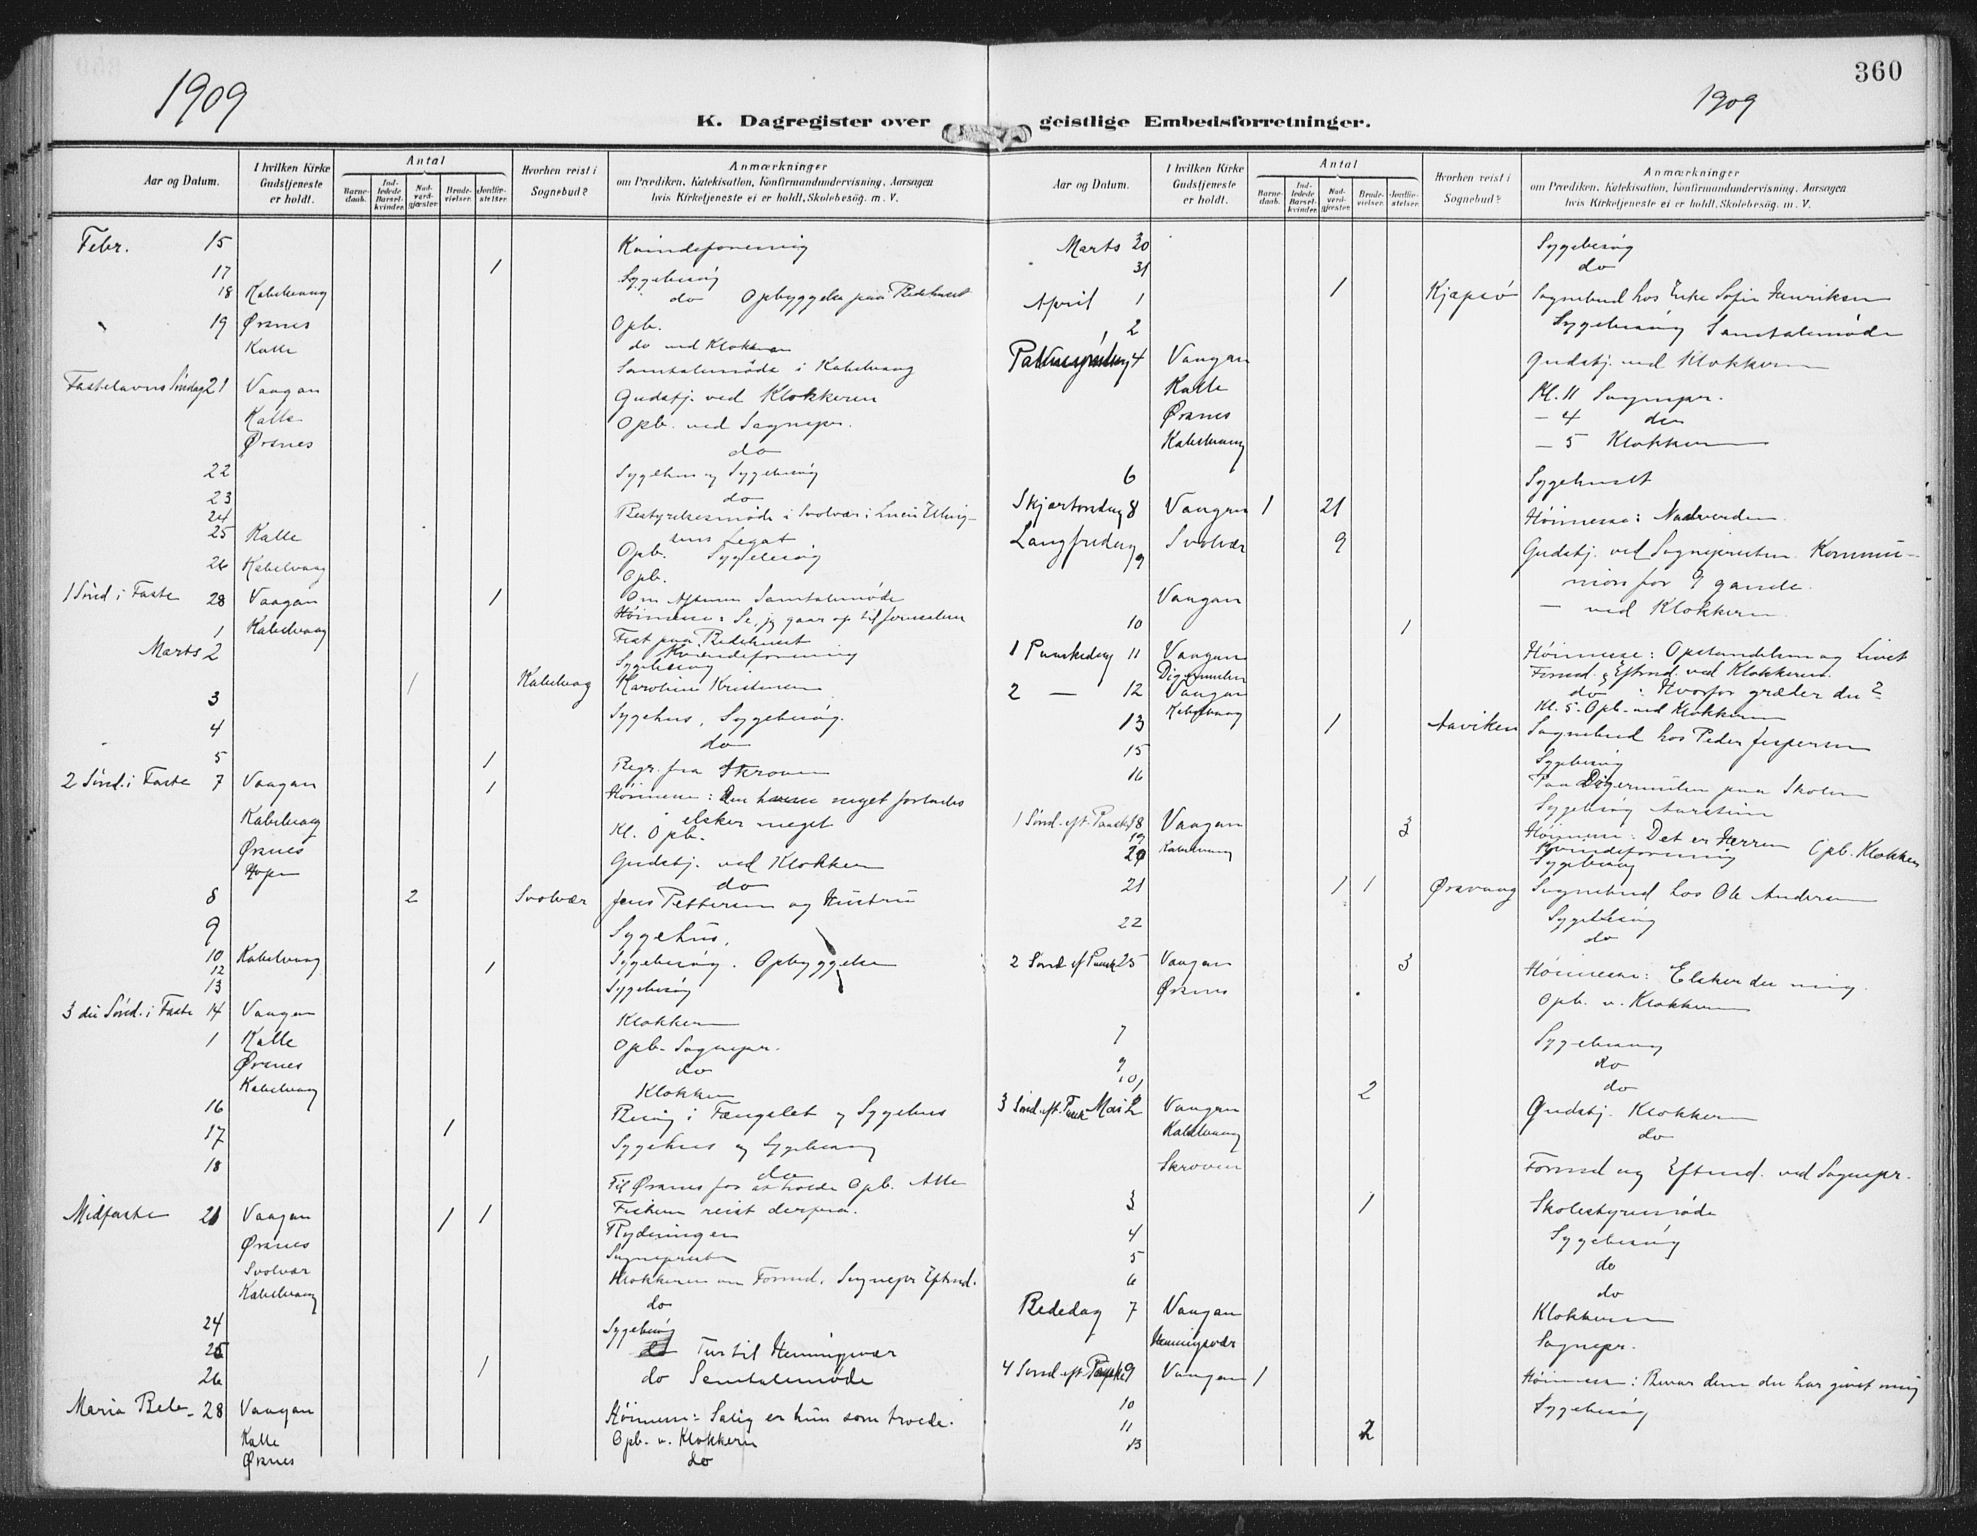 1909
360
1909
K. Dagregister over geistlige Embedsforretninger.
Aar og Datum. I hvilken Kirke Gudstjeneste er holdt. Antal Barne-daab. Ind-ledede Barsel-kvinder. Nad-verd-gjæster. Brude-vielser. Jordfæ-stelser. Hvorhen reist i Sognebud? Anmærkninger om Prædiken, Katekisation, Konfirmandundervisning, Aarsagen hvis Kirketjeneste ei er holdt, Skolebesøg. m. V.
Febr. 15 Kvindeforening
17 1 Sygebesøg
18 Kabelvaag do Opbyggelse paa Bedehuset
19 Ørsnes Opb.
Kalle do ved Klokkeren
Samtalemøde i Kabelvaag
Fastelavns Søndag 21 Vaagan Gudstj. ved Klokkeren
Kalle Opb. ved Sognepr.
Ørsnes do
22 Sygehus og Sygebesøg
23 do
24 Bestyrelsesmøde i Svolvær i
25 Kalle Legat
Opb. Sygebesøg
26 Kabelvaag Opb.
1 Sønd i Faste 28 Vaagan 1 Om Samtalemøde
1 Kabelvaag Høimesse: Se, jeg gaar op til Jerusalem
Fest paa Bedehuset
Marts 2 Kvindeforening
Sygebesøg
1 Kabelvaag Karoline Kristensen
3 Sygehus, Sygebesøg.
4 do
5 1 Begr. fra Skroven
2 Sønd. i Faste 7 Vaagan 1 Høimesse: Den meget forlades
elsker meget
Kabelvaag Kl. Opb.
Ørsnes Gudstj. ved Klokkeren
Hopen do
8 2 Svolvær Jens Pettersen og Hustru
9 Sygehus.
10 Kabelvaag Sygebesøg. Opbyggelse
12 1 Sygebesøg
13
3 die Sønd. i Faste 14 Vaagan Klokkeren
1 Kalle Opb. Sognepr.
Ørsnes do
Kabelvaag Klokkeren
16 Besøg i Fængslet og Sygehus
17 1 Sygehus og Sygebesøg
18 do
Til Ørsnes for at holde Opb. Alle
Fiskere reist derfra.
Midfaste 21 Vaagan 1 1 Rydningen
Ørsnes Sognepresten
Svolvær Klokkeren om Formd. Sognepr Eftmd.
Kabelvaag do
24 Sygebesøg
25 Tur til Henningsvær
26 1 do Samtalemøde
Maria Beb. 28 Vaagan Høimesse: Salig er hun som troede.
Kalle Opb. v. Klokkeren
Ørsnes do
Aar og Datum. I hvilken Kirke Gudstjeneste er holdt. Antal Barne-daab. Ind-ledede Barsel-kvinder. Nad-verd-gjæster. Brude-vielser. Jordfæ-stelser. Hvorhen reist i Sognebud? Anmærkninger om Prædiken, Katekisation, Konfirmandundervisning, Aarsagen hvis Kirketjeneste ei er holdt, Skolebesøg. m. V.
Marts 30 Sygebesøg
31 do
April 1 1 Kjæpsø Sognebud hos Enke Sofie Henriksen
2 Sygebesøg Samtalemøde
Palmesøndag 4 Vaagan Gudstj. ved Klokkeren
Kalle Kl. 11 Sognepr.
Ørsnes – 4 do
Kabelvaag – 5 Klokkeren
6 Sygehuset
Skjærtorsdag 8 Vaagan 1 21 Høimesse: Nadverden.
Langfredag 9 Svolvær 9 Gudstj. ved Sognepresten Kommu-
nion for 9 gande.
Vaagan – ved Klokkeren
10 1
1 Paaskedag 11 Vaagan Høimesse: Opstandelsen og Livet
Digermulen Formd. & Eftmd. ved Klokkeren.
2 – 12 Vaagan do : Hvorfor græder du?
Kabelvaag Kl. 5 Opb. ved Klokkeren
13 1 Aaviken Sognebud hos Peder Jespersen
15 Sygebesøg
16 Paa Digermulen paa Skolen
Sygebesøg
1 Sønd. eft. Paaske 18 Vaagan 3 Høimesse: Det er Herren Opb. Klokkeren
19 Kabelvaag Kvindeforening
20 Sygebesøg
21 1 1 Ørsvaag Sognebud hos Ole Andersen
22 Sygebesøg
do
2 Sønd ef Paaske 25 Vaagan 3 Høimesse: Elsker du mig.
Ørsnes Opb. v. Klokkeren
7 Sygebesøg
9 do
10 do
2
3 Sønd. eft. Paaske Mai 2 Vaagan Gudstj. Klokkeren
Kabelvaag do
Skroven Formd og Eftmd. ved Sognepr.
3 1 Skolestyremøde
4 Sygebesøg
5 do
6 do
Bededag 7 Vaagan Klokkeren
Henningsvær Sognepr.
4 Sønd eft. Paaske 9 Vaagan 1 Høimesse: Bevar dem du har givet mig
10 Sygebesøg
11 2
13